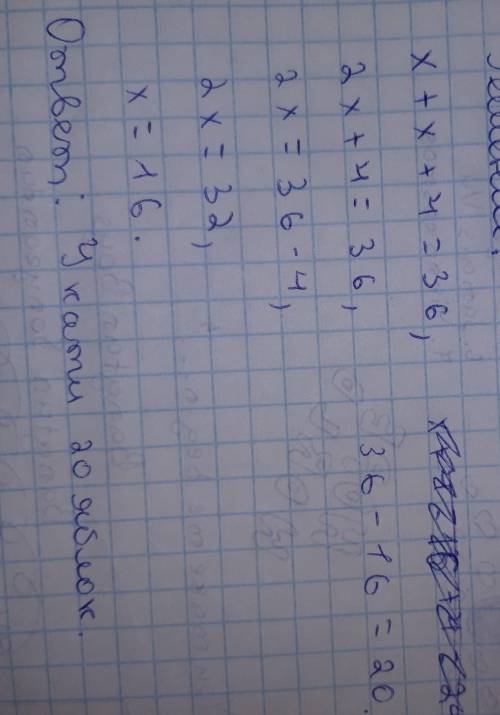 Решение:
x + x + 4 = 36,
2x + 4 = 36,
2x = 36 - 4,
2x = 32,
x = 16.
36 - 16 = 20.
Ответ: У кати 20 яблок.